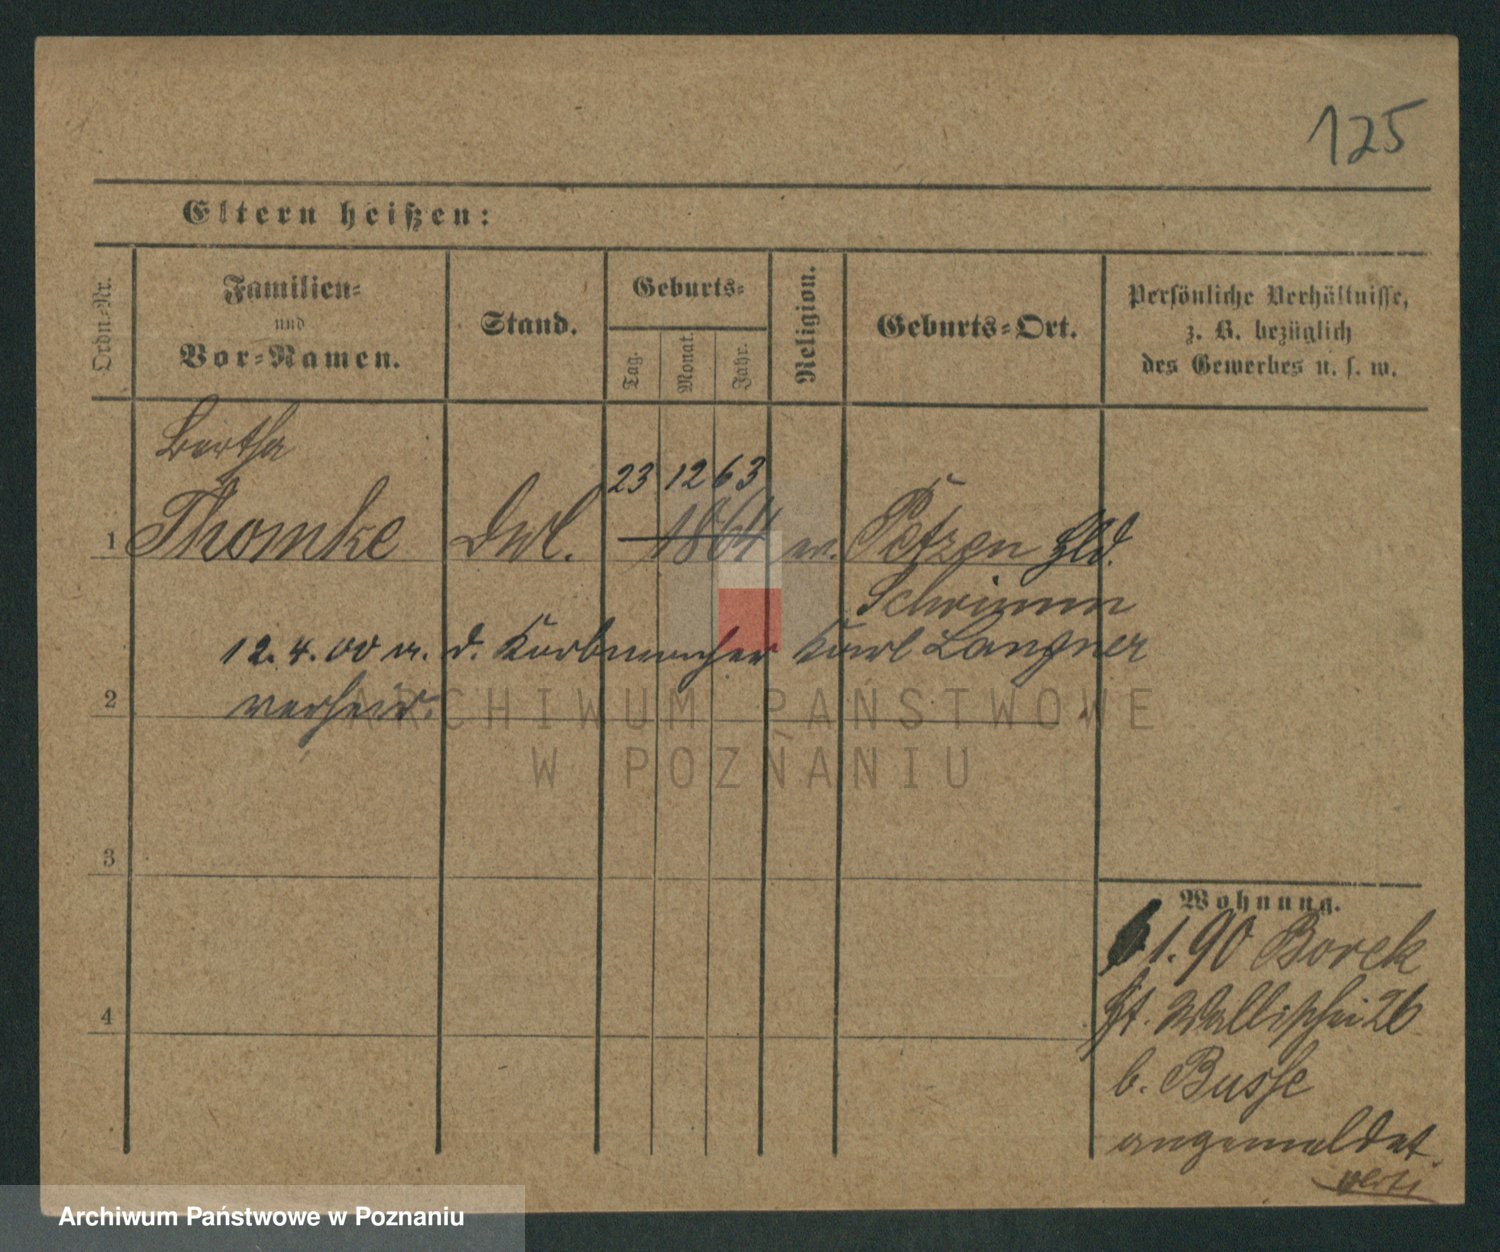 125
Eltern heißen:
Ordn.-Nr.
Familien-
und
Vor-Namen.
Stand.
Geburts-
Tag.
Monat.
Jahr.
Religion.
Geburts-Ort.
Persönliche Verhältnisse,
z. B. bezüglich
des Gewerbes u. s. w.
Bertha
23 12 63
1 Thomke 1864 ev. Petzen
Schrimm
12.4.00 m. d. Korbmacher Karl Langner
2 verheir.
3
4
Wohnung.
1.90 Borek
St. Wallischei 26
b. Busse
angemeldet.
ARCHIWUM PAŃSTWOWE
W POZNANIU
Archiwum Państwowe w Poznaniu